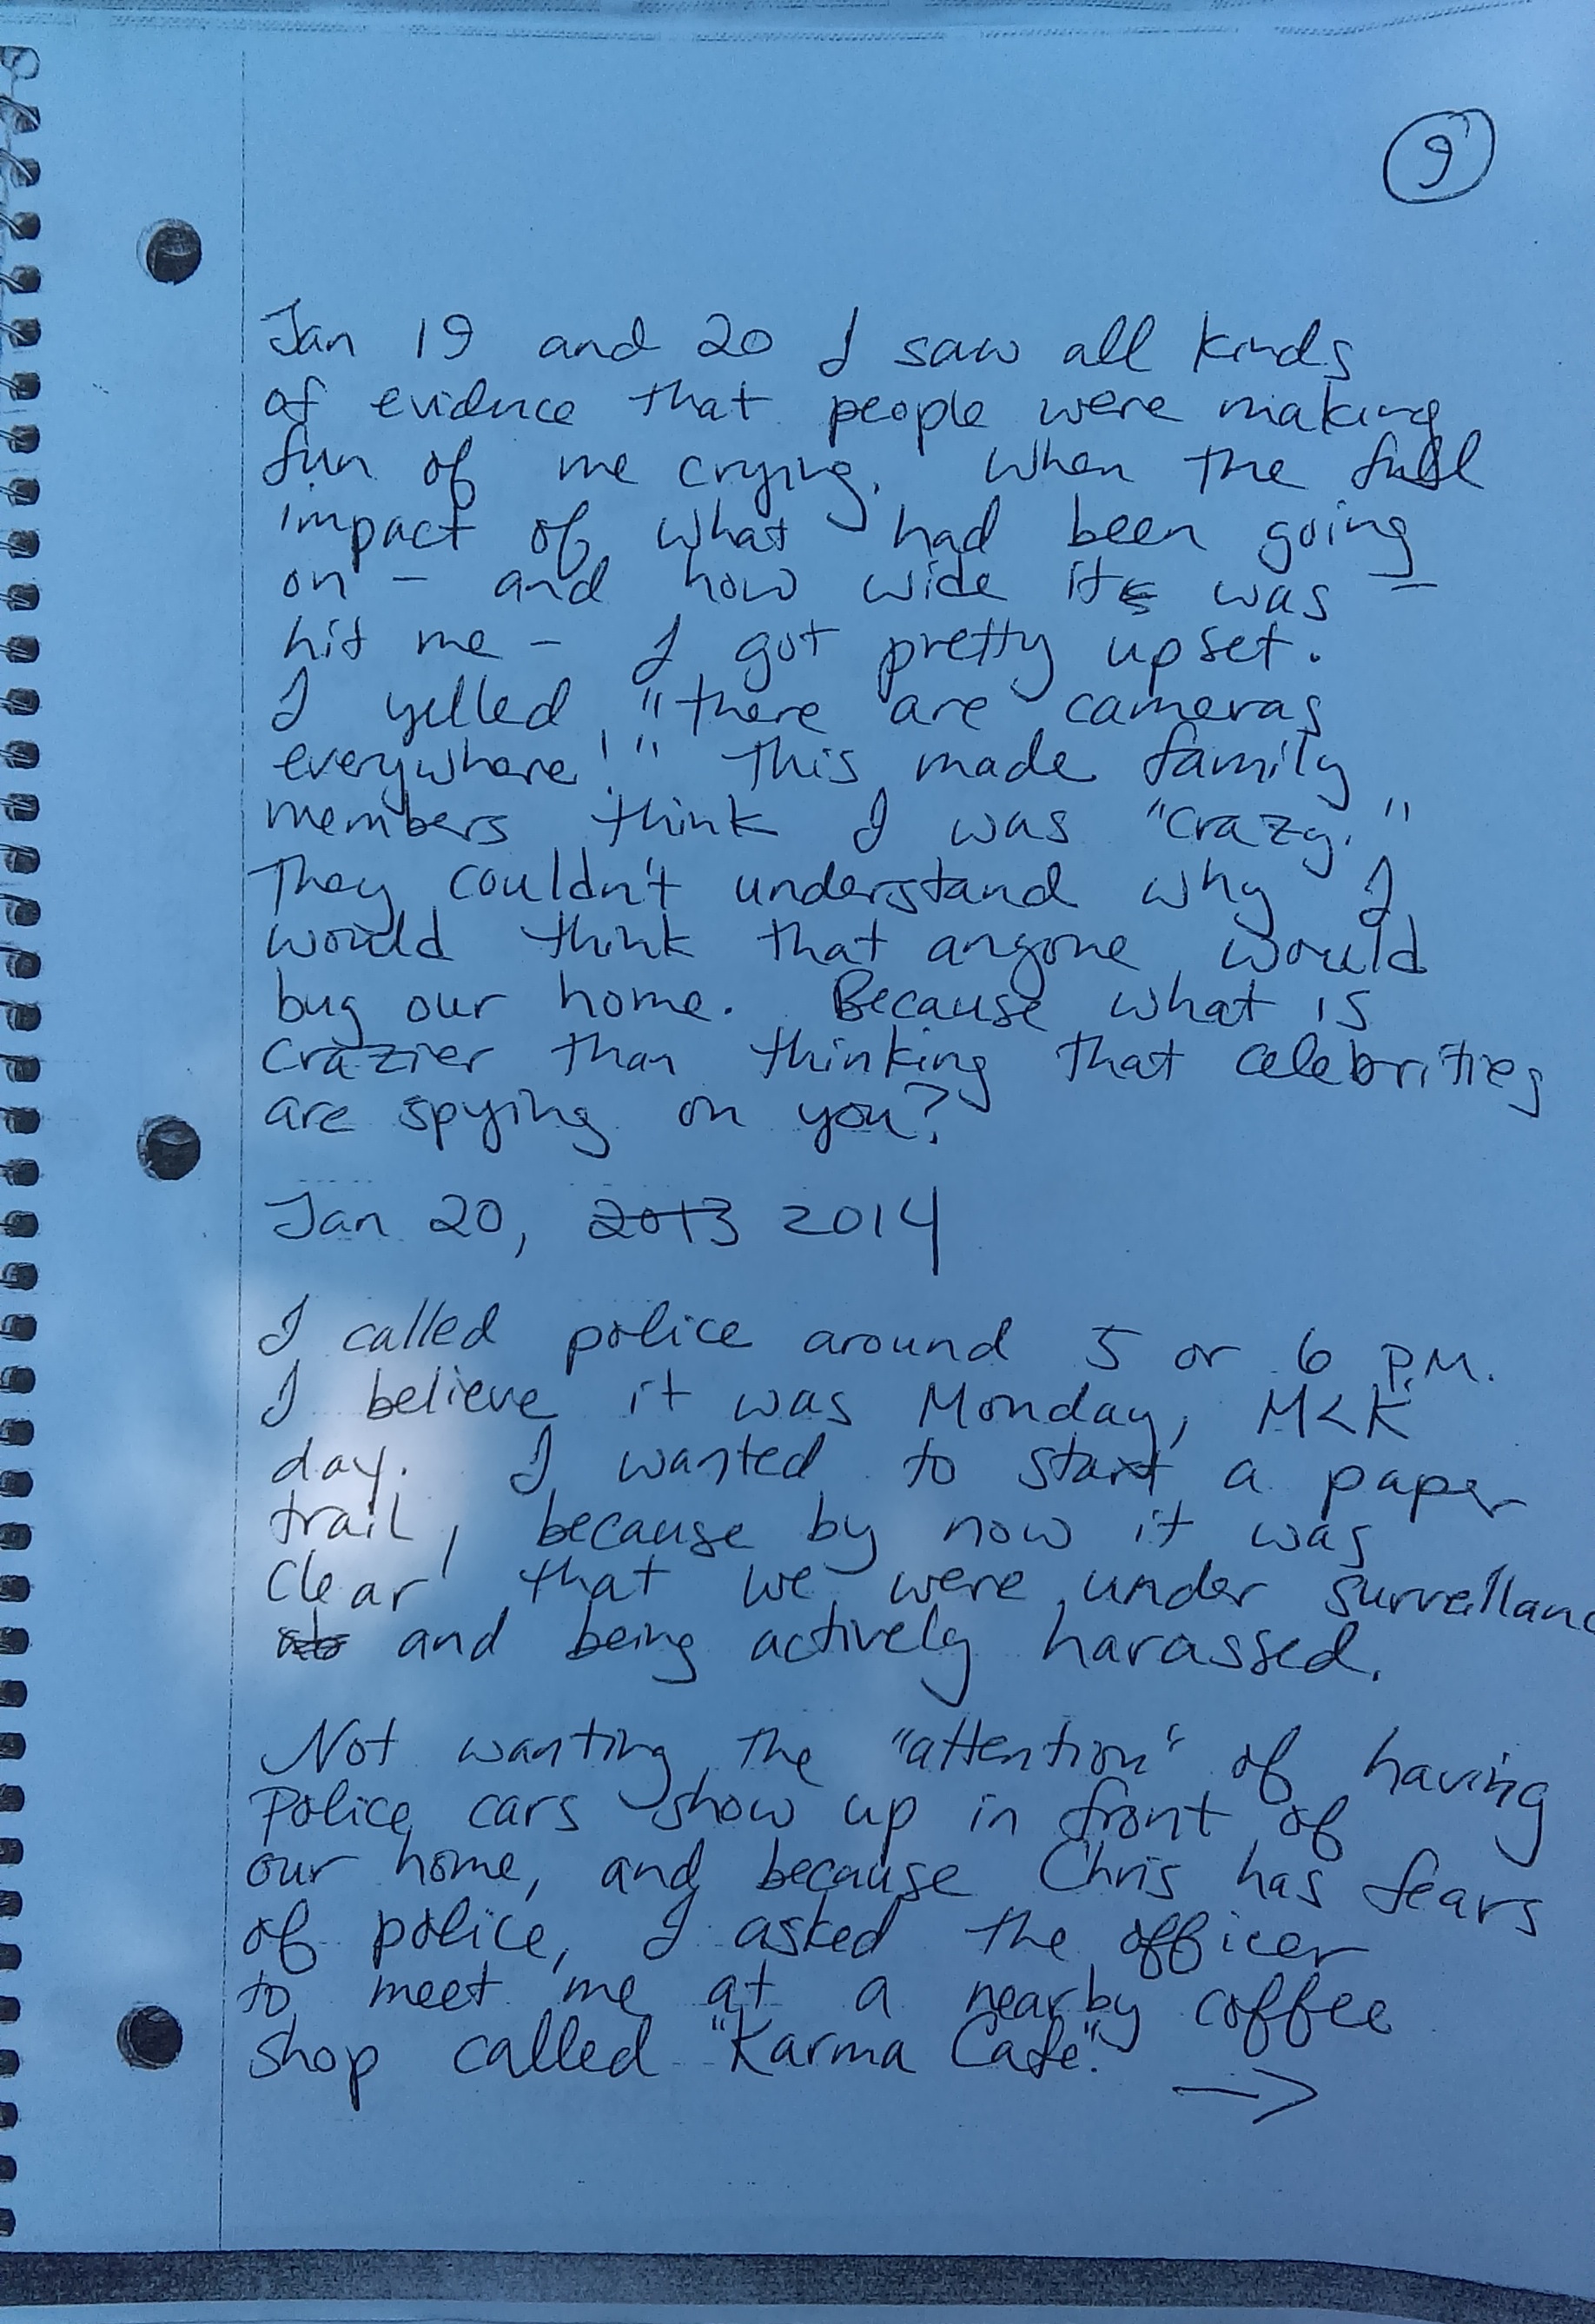 9
Jan 19 and 20 I saw all kinds
of evidence that people were making
fun of me crying. When the full
impact of what had been going
on - and how wide it was -
hit me - I got pretty upset.
I yelled "there are cameras
everywhere!" This made family
members think I was "crazy."
They couldn't understand why I
would think that anyone would
bug our home. Because what is
crazier than thinking that celebrities
are spying on you?
Jan 20, 2013 2014
I called police around 5 or 6 P.M.
I believe it was Monday, MLK
day. I wanted to start a paper
trail, because by now it was
clear that we were under surveillanc
and being actively harassed.
Not wanting the "attention" of having
Police cars show up in front of
our home, and because Chris has fears
of police, I asked the officer
to meet me at a nearby coffee
shop called "Karma Cafe". →